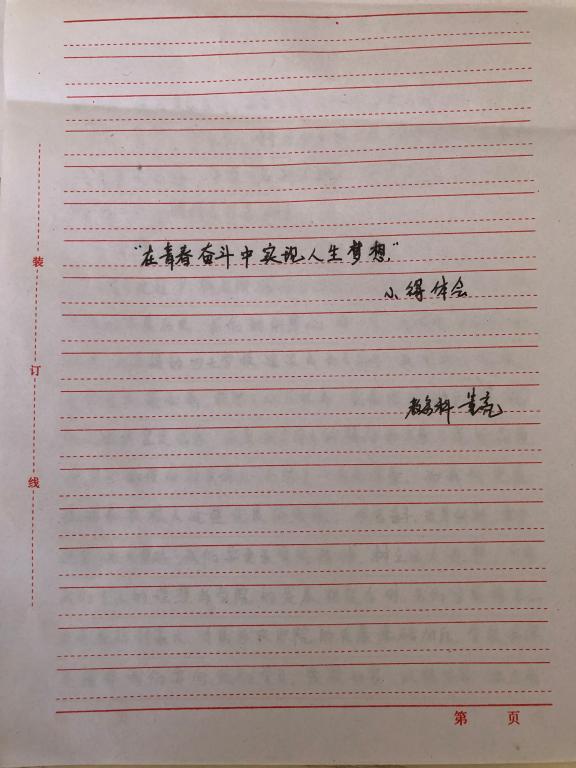 装
订
线
“在青春奋斗中实现人生梦想”
心得体会
教务科 崔亮
第 页